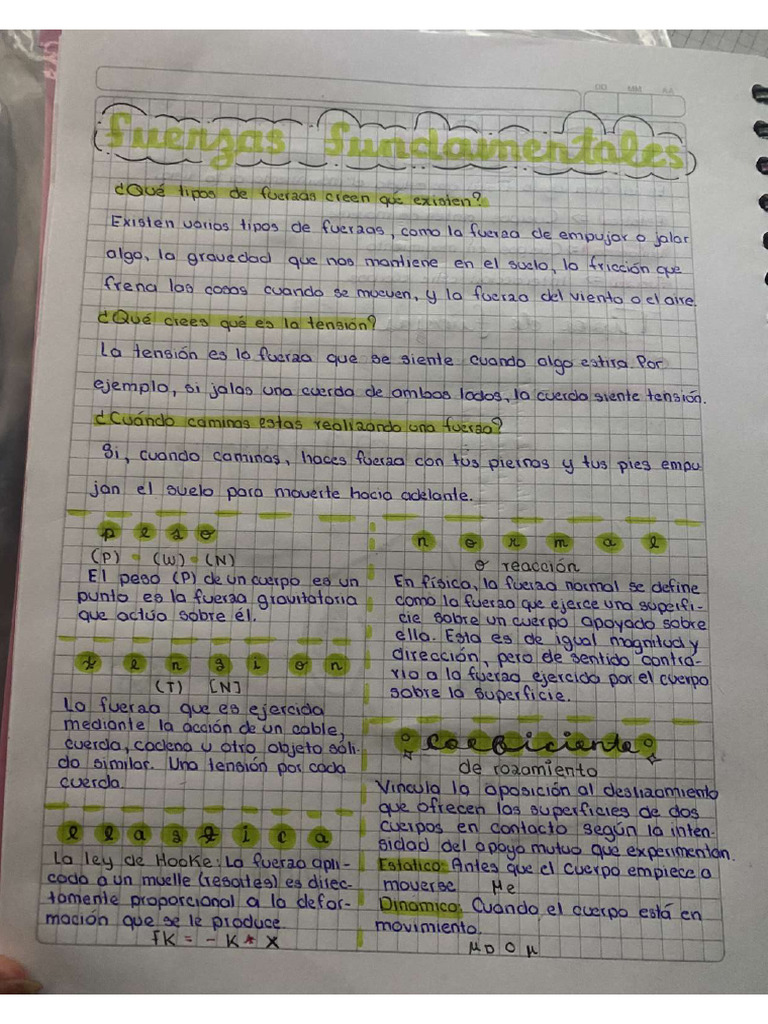 DD MM AA
Fuerzas fundamentales
¿Qué tipos de fuerzas creen que existen?
Existen varios tipos de fuerzas, como la fuerza de empujar o jalar
algo, la gravedad que nos mantiene en el suelo, la fricción que
frena las cosas cuando se mueven, y la fuerza del viento o el aire.
¿Qué crees qué es la tensión?
La tensión es la fuerza que se siente cuando algo estira. Por
ejemplo, si jalas una cuerda de ambos lados, la cuerda siente tensión.
¿Cuándo caminas estas realizando una fuerza?
Si, cuando caminas, haces fuerza con tus piernas y tus pies empu
jan el suelo para moverte hacia adelante.
peso
(P) = (W) = (N)
El peso (P) de un cuerpo es un
punto es la fuerza gravitatoria
que actúa sobre él.
tensión
(T) [N]
La fuerza que es ejercida
mediante la acción de un cable,
cuerda, cadena u otro objeto sóli-
do similar. Una tensión por cada
cuerda.
elastica
La ley de Hooke: La fuerza apli-
cada a un muelle (resortes) es direc-
tamente proporcional a la defor-
mación que se le produce.
fK = - K * X
normal
o reacción
En física, la fuerza normal se define
como la fuerza que ejerce una superfi-
cie sobre un cuerpo apoyado sobre
ella. Esta es de igual magnitud y
dirección, pero de sentido contra-
rio a la fuerza ejercida por el cuerpo
sobre la superficie.
coeficiente
de rozamiento
Vincula la oposición al deslizamiento
que ofrecen las superficies de dos
cuerpos en contacto según la inten-
sidad del apoyo mutuo que experimentan.
Estatico: Antes que el cuerpo empiece a
moverse μe
Dinamico: Cuando el cuerpo está en
movimiento.
μD O μ